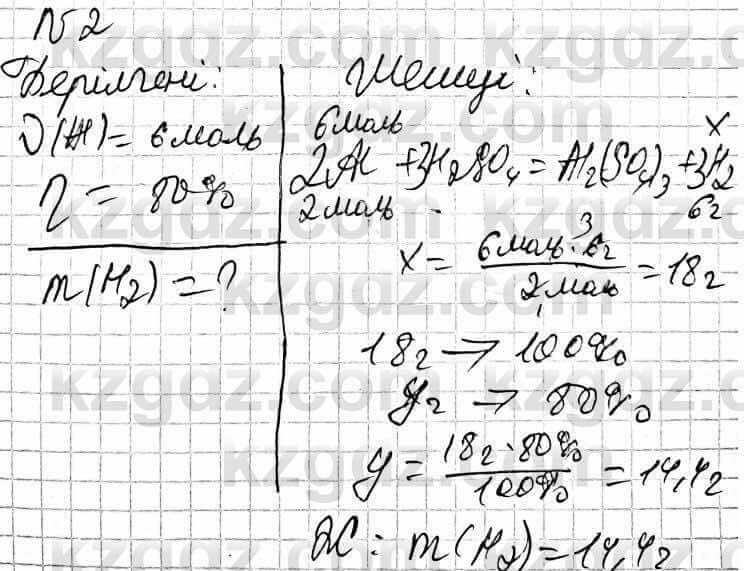 №2
Берілгені:
ν(Al)= 6моль
η = 80%
m(H₂) = ?
Шешуі:
6моль x
2Al + 3H₂SO₄ = Al₂(SO₄)₃ + 3H₂
2моль 6г
x = (6моль · 6г)/(2моль) = 18г
18г → 100%
yг → 80%
y = (18г · 80%)/(100%) = 14,4г
Ж: m(H₂) = 14,4г
kzgdz.com